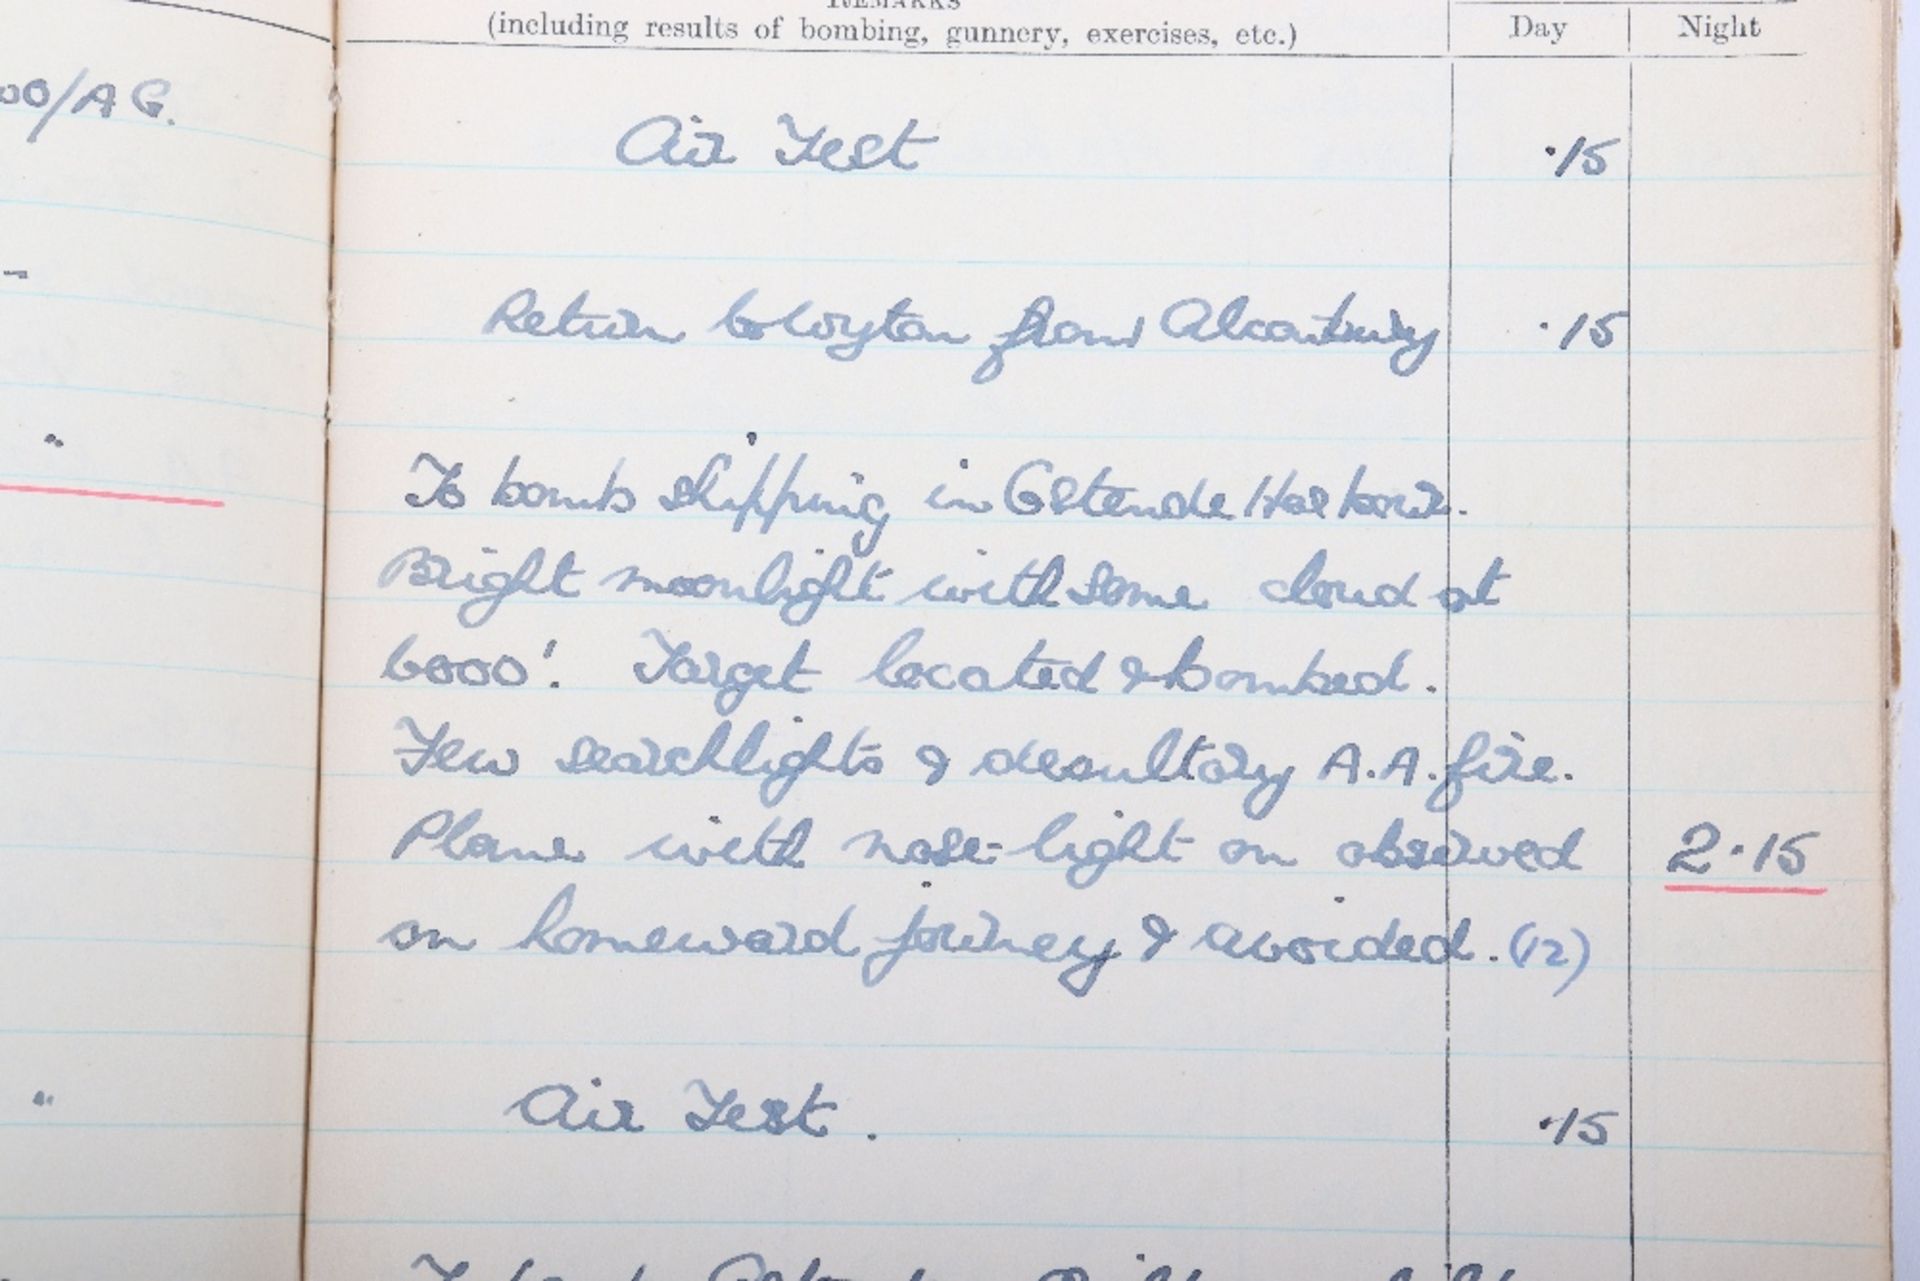 REMARKS
(including results of bombing, gunnery, exercises, etc.)
Day
Night
/AG.
Air Test
·15
Return to Wyton from Alconbury
·15
To bomb shipping in Ostende Harbour.
Bright moonlight with some cloud at
6000'. Target located & bombed.
Few searchlights & desultory A.A. fire.
Plane with nose-light on observed
2·15
on homeward journey & avoided. (12)
Air Test.
·15